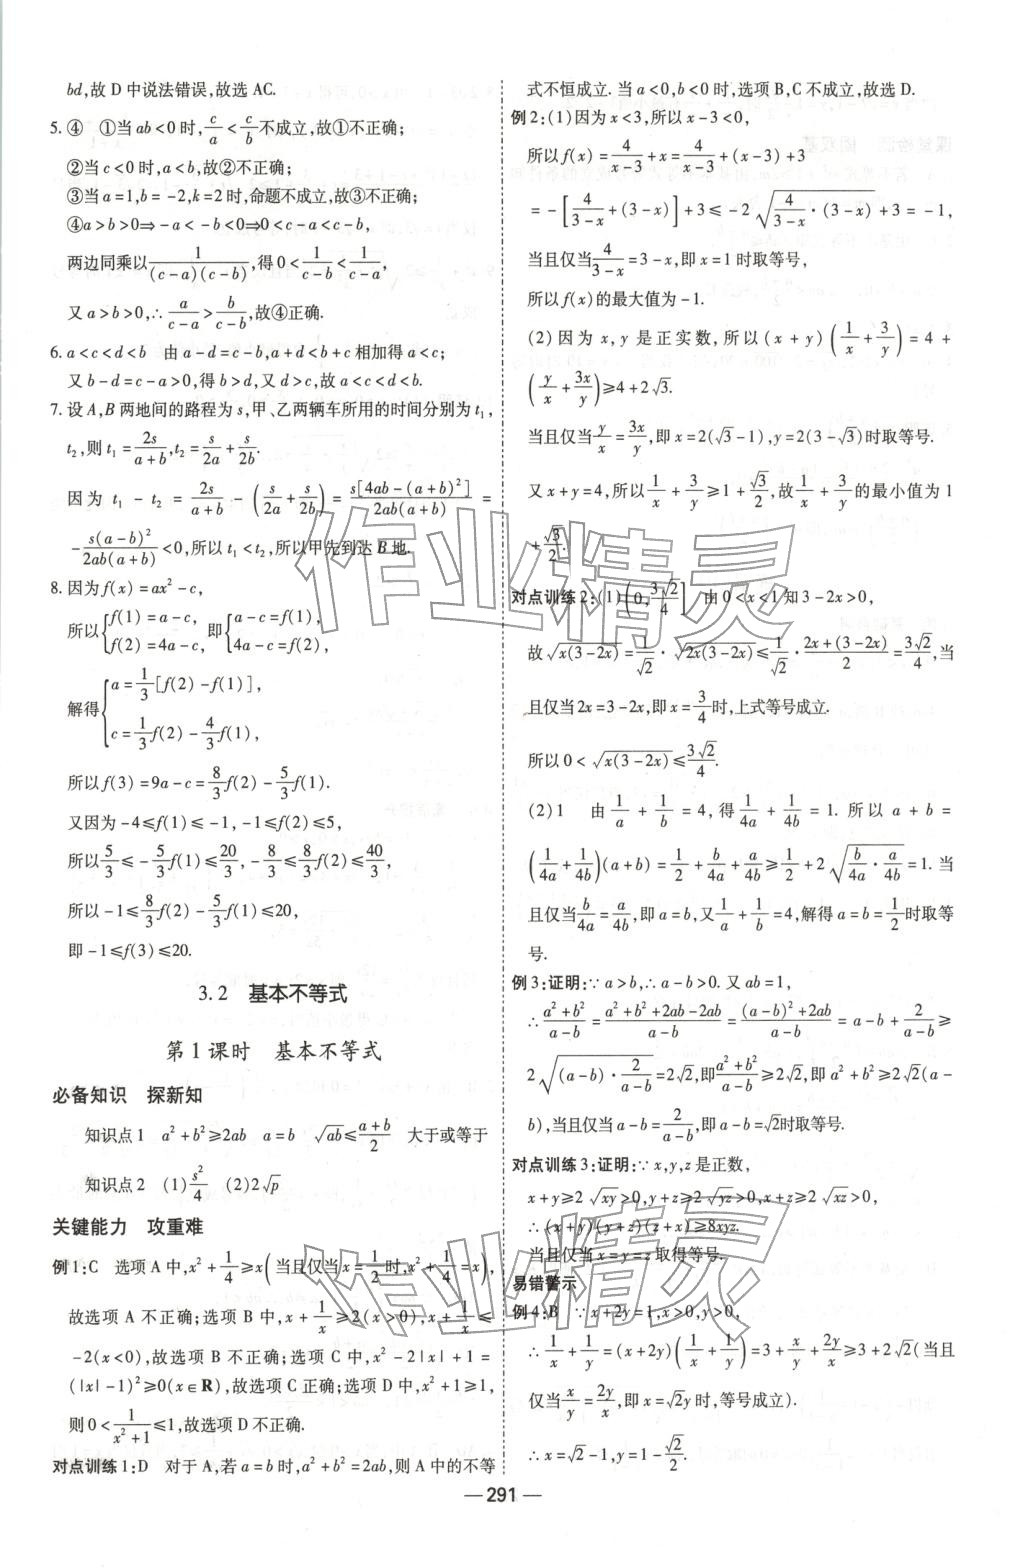 bd,故 D 中说法错误,故选 AC.
5. ④ ①当 ab<0 时, c/a < c/b 不成立,故①不正确;
②当 c<0 时,a<b,故②不正确;
③当 a=1,b=-2,k=2 时,命题不成立,故③不正确;
④a>b>0⇒-a<-b<0⇒0<c-a<c-b,
两边同乘以 1/((c-a)(c-b)),得 0< 1/(c-b) < 1/(c-a),
又 a>b>0,∴ a/(c-a) > b/(c-b),故④正确.
6. a<c<d<b 由 a-d=c-b,a+d<b+c 相加得 a<c;
又 b-d=c-a>0,得 b>d,又 d>c,故 a<c<d<b.
7. 设 A,B 两地间的路程为 s,甲、乙两辆车所用的时间分别为 t₁,
t₂,则 t₁ = 2s/(a+b), t₂ = s/2a + s/2b.
因为 t₁ - t₂ = 2s/(a+b) - (s/2a + s/2b) = s[4ab-(a+b)²]/(2ab(a+b)) =
-s(a-b)²/(2ab(a+b)) <0,所以 t₁<t₂,所以甲先到达 B 地.
8. 因为 f(x)=ax²-c,
所以 {f(1)=a-c, f(2)=4a-c, 即 {a-c=f(1), 4a-c=f(2),
解得 {a= 1/3 [f(2)-f(1)], c= 1/3 f(2) - 4/3 f(1),
所以 f(3)=9a-c= 8/3 f(2) - 5/3 f(1).
又因为 -4≤f(1)≤-1,-1≤f(2)≤5,
所以 5/3 ≤ -5/3 f(1) ≤ 20/3, -8/3 ≤ 8/3 f(2) ≤ 40/3,
所以 -1≤ 8/3 f(2) - 5/3 f(1) ≤20,
即 -1≤f(3)≤20.
3.2 基本不等式
第 1 课时 基本不等式
必备知识 探新知
知识点 1 a²+b²≥2ab a=b √ab ≤ (a+b)/2 大于或等于
知识点 2 (1) s²/4 (2) 2√p
关键能力 攻重难
例 1:C 选项 A 中,x²+ 1/4 ≥x(当且仅当 x= 1/2 时,x²+ 1/4 =x),
故选项 A 不正确;选项 B 中,x+ 1/x ≥2(x>0),x+ 1/x ≤
-2(x<0),故选项 B 不正确;选项 C 中,x²-2|x|+1=
(|x|-1)²≥0(x∈R),故选项 C 正确;选项 D 中,x²+1≥1,
则 0< 1/(x²+1) ≤1,故选项 D 不正确.
对点训练 1:D 对于 A,若 a=b 时,a²+b²=2ab,则 A 中的不等
式不恒成立. 当 a<0,b<0 时,选项 B,C 不成立,故选 D.
例 2:(1)因为 x<3,所以 x-3<0,
所以 f(x)= 4/(x-3) +x= 4/(x-3) +(x-3)+3
=-[4/(3-x) +(3-x)]+3≤-2√(4/(3-x) ·(3-x)) +3=-1,
当且仅当 4/(3-x) =3-x,即 x=1 时取等号,
所以 f(x)的最大值为 -1.
(2)因为 x,y 是正实数,所以(x+y)(1/x + 3/y)=4+
(y/x + 3x/y)≥4+2√3.
当且仅当 y/x = 3x/y,即 x=2(√3-1),y=2(3-√3)时取等号.
又 x+y=4,所以 1/x + 3/y ≥1+ √3/2,故 1/x + 3/y 的最小值为 1
+ √3/2.
对点训练 2:(1)(0, 3√2/4] 由 0<x<1 知 3-2x>0,
故 √(x(3-2x)) = 1/√2 · √(2x(3-2x)) ≤ 1/√2 · (2x+(3-2x))/2 = 3√2/4,当
且仅当 2x=3-2x,即 x= 3/4 时,上式等号成立.
所以 0<√(x(3-2x)) ≤ 3√2/4.
(2)1 由 1/a + 1/b =4,得 1/4a + 1/4b =1. 所以 a+b=
(1/4a + 1/4b)(a+b)= 1/2 + b/4a + a/4b ≥ 1/2 +2√(b/4a · a/4b) =1. 当
且仅当 b/4a = a/4b,即 a=b,又 1/a + 1/b =4,解得 a=b= 1/2 时取等
号.
例 3:证明:∵a>b,∴a-b>0. 又 ab=1,
∴ (a²+b²)/(a-b) = (a²+b²+2ab-2ab)/(a-b) = ((a-b)²+2ab)/(a-b) =a-b+ 2/(a-b) ≥
2√((a-b)· 2/(a-b)) =2√2,即 (a²+b²)/(a-b) ≥2√2,即 a²+b²≥2√2(a-
b),当且仅当 a-b= 2/(a-b),即 a-b=√2时取等号.
对点训练 3:证明:∵x,y,z 是正数,
x+y≥2√xy>0,y+z≥2√yz>0,x+z≥2√xz>0,
∴(x+y)(y+z)(z+x)≥8xyz.
当且仅当 x=y=z 取得等号.
易错警示
例 4:B ∵x+2y=1,x>0,y>0,
∴ 1/x + 1/y =(x+2y)(1/x + 1/y)=3+ x/y + 2y/x ≥3+2√2(当且
仅当 x/y = 2y/x,即 x=√2y 时,等号成立).
∴x=√2-1,y=1- √2/2.
— 291 —
作业精灵
作业精灵